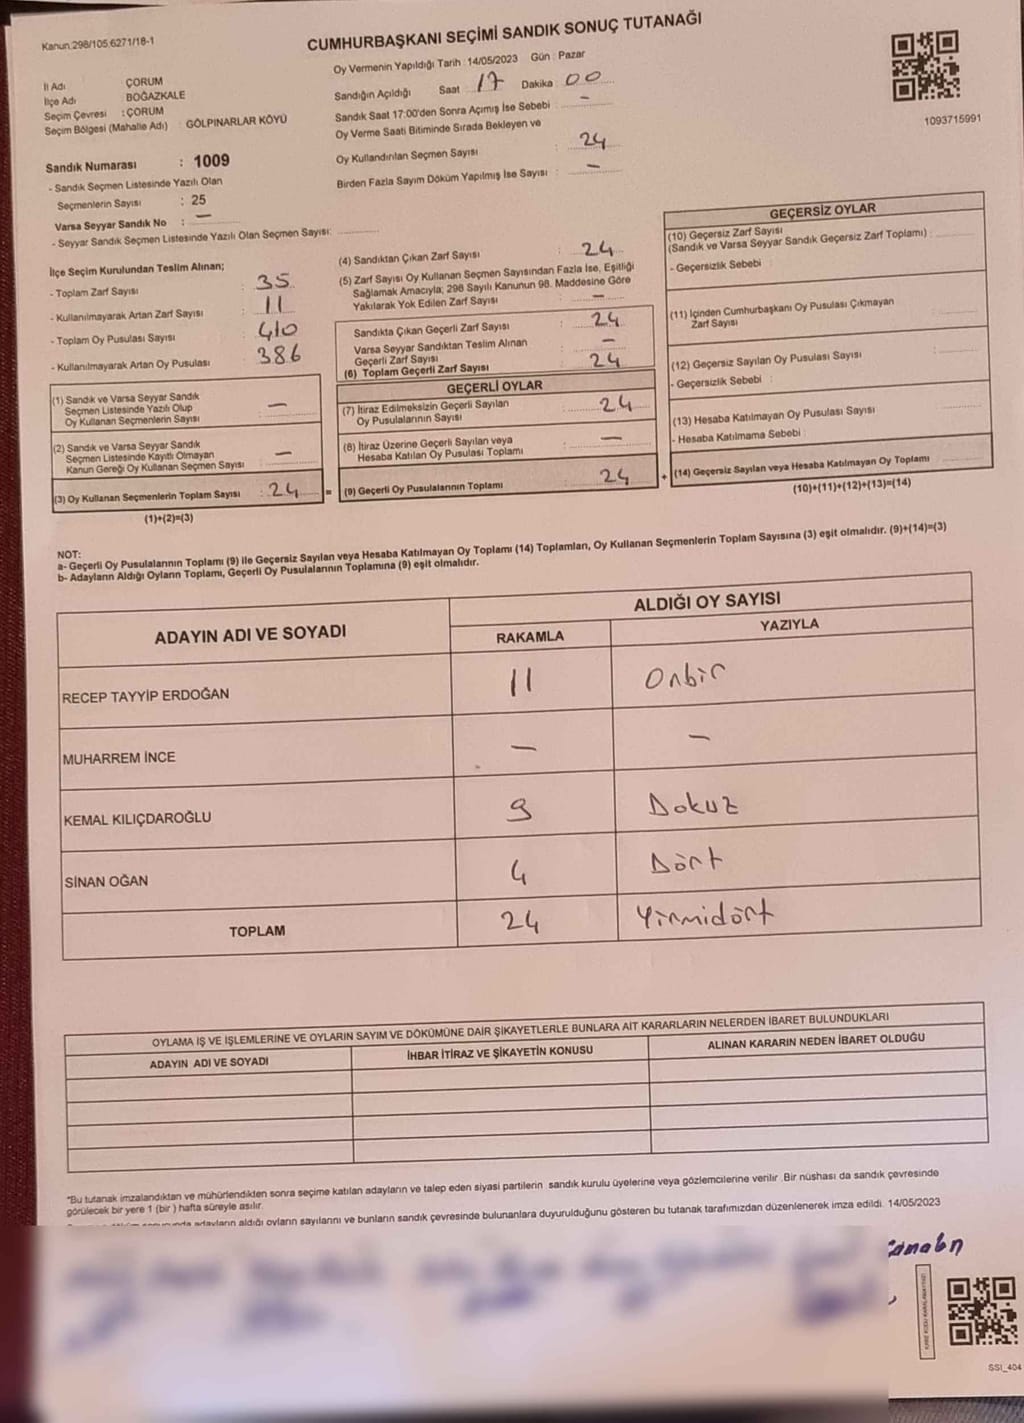 Kanun:298/105.6271/18-1
CUMHURBAŞKANI SEÇİMİ SANDIK SONUÇ TUTANAĞI
İl Adı ÇORUM
İlçe Adı BOĞAZKALE
Seçim Çevresi : ÇORUM
Seçim Bölgesi (Mahalle Adı) GÖLPINARLAR KÖYÜ
Sandık Numarası : 1009
- Sandık Seçmen Listesinde Yazılı Olan
Seçmenlerin Sayısı : 25
Varsa Seyyar Sandık No : —
- Seyyar Sandık Seçmen Listesinde Yazılı Olan Seçmen Sayısı:
Oy Vermenin Yapıldığı Tarih : 14/05/2023 Gün : Pazar
Sandığın Açıldığı Saat 17 Dakika : 00
Sandık Saat 17:00'den Sonra Açımış İse Sebebi : —
Oy Verme Saati Bitiminde Sırada Bekleyen ve
Oy Kullandırılan Seçmen Sayısı : 24
Birden Fazla Sayım Döküm Yapılmış İse Sayısı : —
1093715991
İlçe Seçim Kurulundan Teslim Alınan;
- Toplam Zarf Sayısı : 35
- Kullanılmayarak Artan Zarf Sayısı : 11
- Toplam Oy Pusulası Sayısı : 410
- Kullanılmayarak Artan Oy Pusulası : 386
(1) Sandık ve Varsa Seyyar Sandık
Seçmen Listesinde Yazılı Olup
Oy Kullanan Seçmenlerin Sayısı : —
(2) Sandık ve Varsa Seyyar Sandık
Seçmen Listesinde Kayıtlı Olmayan
Kanun Gereği Oy Kullanan Seçmen Sayısı : —
(3) Oy Kullanan Seçmenlerin Toplam Sayısı : 24 =
(1)+(2)=(3)
(4) Sandıktan Çıkan Zarf Sayısı : 24
(5) Zarf Sayısı Oy Kullanan Seçmen Sayısından Fazla İse, Eşitliği
Sağlamak Amacıyla; 298 Sayılı Kanunun 98. Maddesine Göre
Yakılarak Yok Edilen Zarf Sayısı : —
Sandıkta Çıkan Geçerli Zarf Sayısı : 24
Varsa Seyyar Sandıktan Teslim Alınan
Geçerli Zarf Sayısı : —
(6) Toplam Geçerli Zarf Sayısı : 24
GEÇERLİ OYLAR
(7) İtiraz Edilmeksizin Geçerli Sayılan
Oy Pusulalarının Sayısı : 24
(8) İtiraz Üzerine Geçerli Sayılan veya
Hesaba Katılan Oy Pusulası Toplamı : —
(9) Geçerli Oy Pusulalarının Toplamı : 24 +
GEÇERSİZ OYLAR
(10) Geçersiz Zarf Sayısı
(Sandık ve Varsa Seyyar Sandık Geçersiz Zarf Toplamı) :
- Geçersizlik Sebebi :
(11) İçinden Cumhurbaşkanı Oy Pusulası Çıkmayan
Zarf Sayısı
(12) Geçersiz Sayılan Oy Pusulası Sayısı :
- Geçersizlik Sebebi :
(13) Hesaba Katılmayan Oy Pusulası Sayısı :
- Hesaba Katılmama Sebebi :
(14) Geçersiz Sayılan veya Hesaba Katılmayan Oy Toplamı
(10)+(11)+(12)+(13)=(14)
NOT:
a- Geçerli Oy Pusulalarının Toplamı (9) ile Geçersiz Sayılan veya Hesaba Katılmayan Oy Toplamı (14) Toplamları, Oy Kullanan Seçmenlerin Toplam Sayısına (3) eşit olmalıdır. (9)+(14)=(3)
b- Adayların Aldığı Oyların Toplamı, Geçerli Oy Pusulalarının Toplamına (9) eşit olmalıdır.
ADAYIN ADI VE SOYADI ALDIĞI OY SAYISI
RAKAMLA YAZIYLA
RECEP TAYYİP ERDOĞAN 11 Onbir
MUHARREM İNCE — —
KEMAL KILIÇDAROĞLU 9 Dokuz
SİNAN OĞAN 4 Dört
TOPLAM 24 Yirmidört
OYLAMA İŞ VE İŞLEMLERİNE VE OYLARIN SAYIM VE DÖKÜMÜNE DAİR ŞİKAYETLERLE BUNLARA AİT KARARLARIN NELERDEN İBARET BULUNDUKLARI
ADAYIN ADI VE SOYADI İHBAR İTİRAZ VE ŞİKAYETİN KONUSU ALINAN KARARIN NEDEN İBARET OLDUĞU
*Bu tutanak imzalandıktan ve mühürlendikten sonra seçime katılan adayların ve talep eden siyasi partilerin sandık kurulu üyelerine veya gözlemcilerine verilir. Bir nüshası da sandık çevresinde
görülecek bir yere 1 (bir ) hafta süreyle asılır.
adayların aldığı oyların sayılarını ve bunların sandık çevresinde bulunanlara duyurulduğunu gösteren bu tutanak tarafımızdan düzenlenerek imza edildi. 14/05/2023
SSI_404